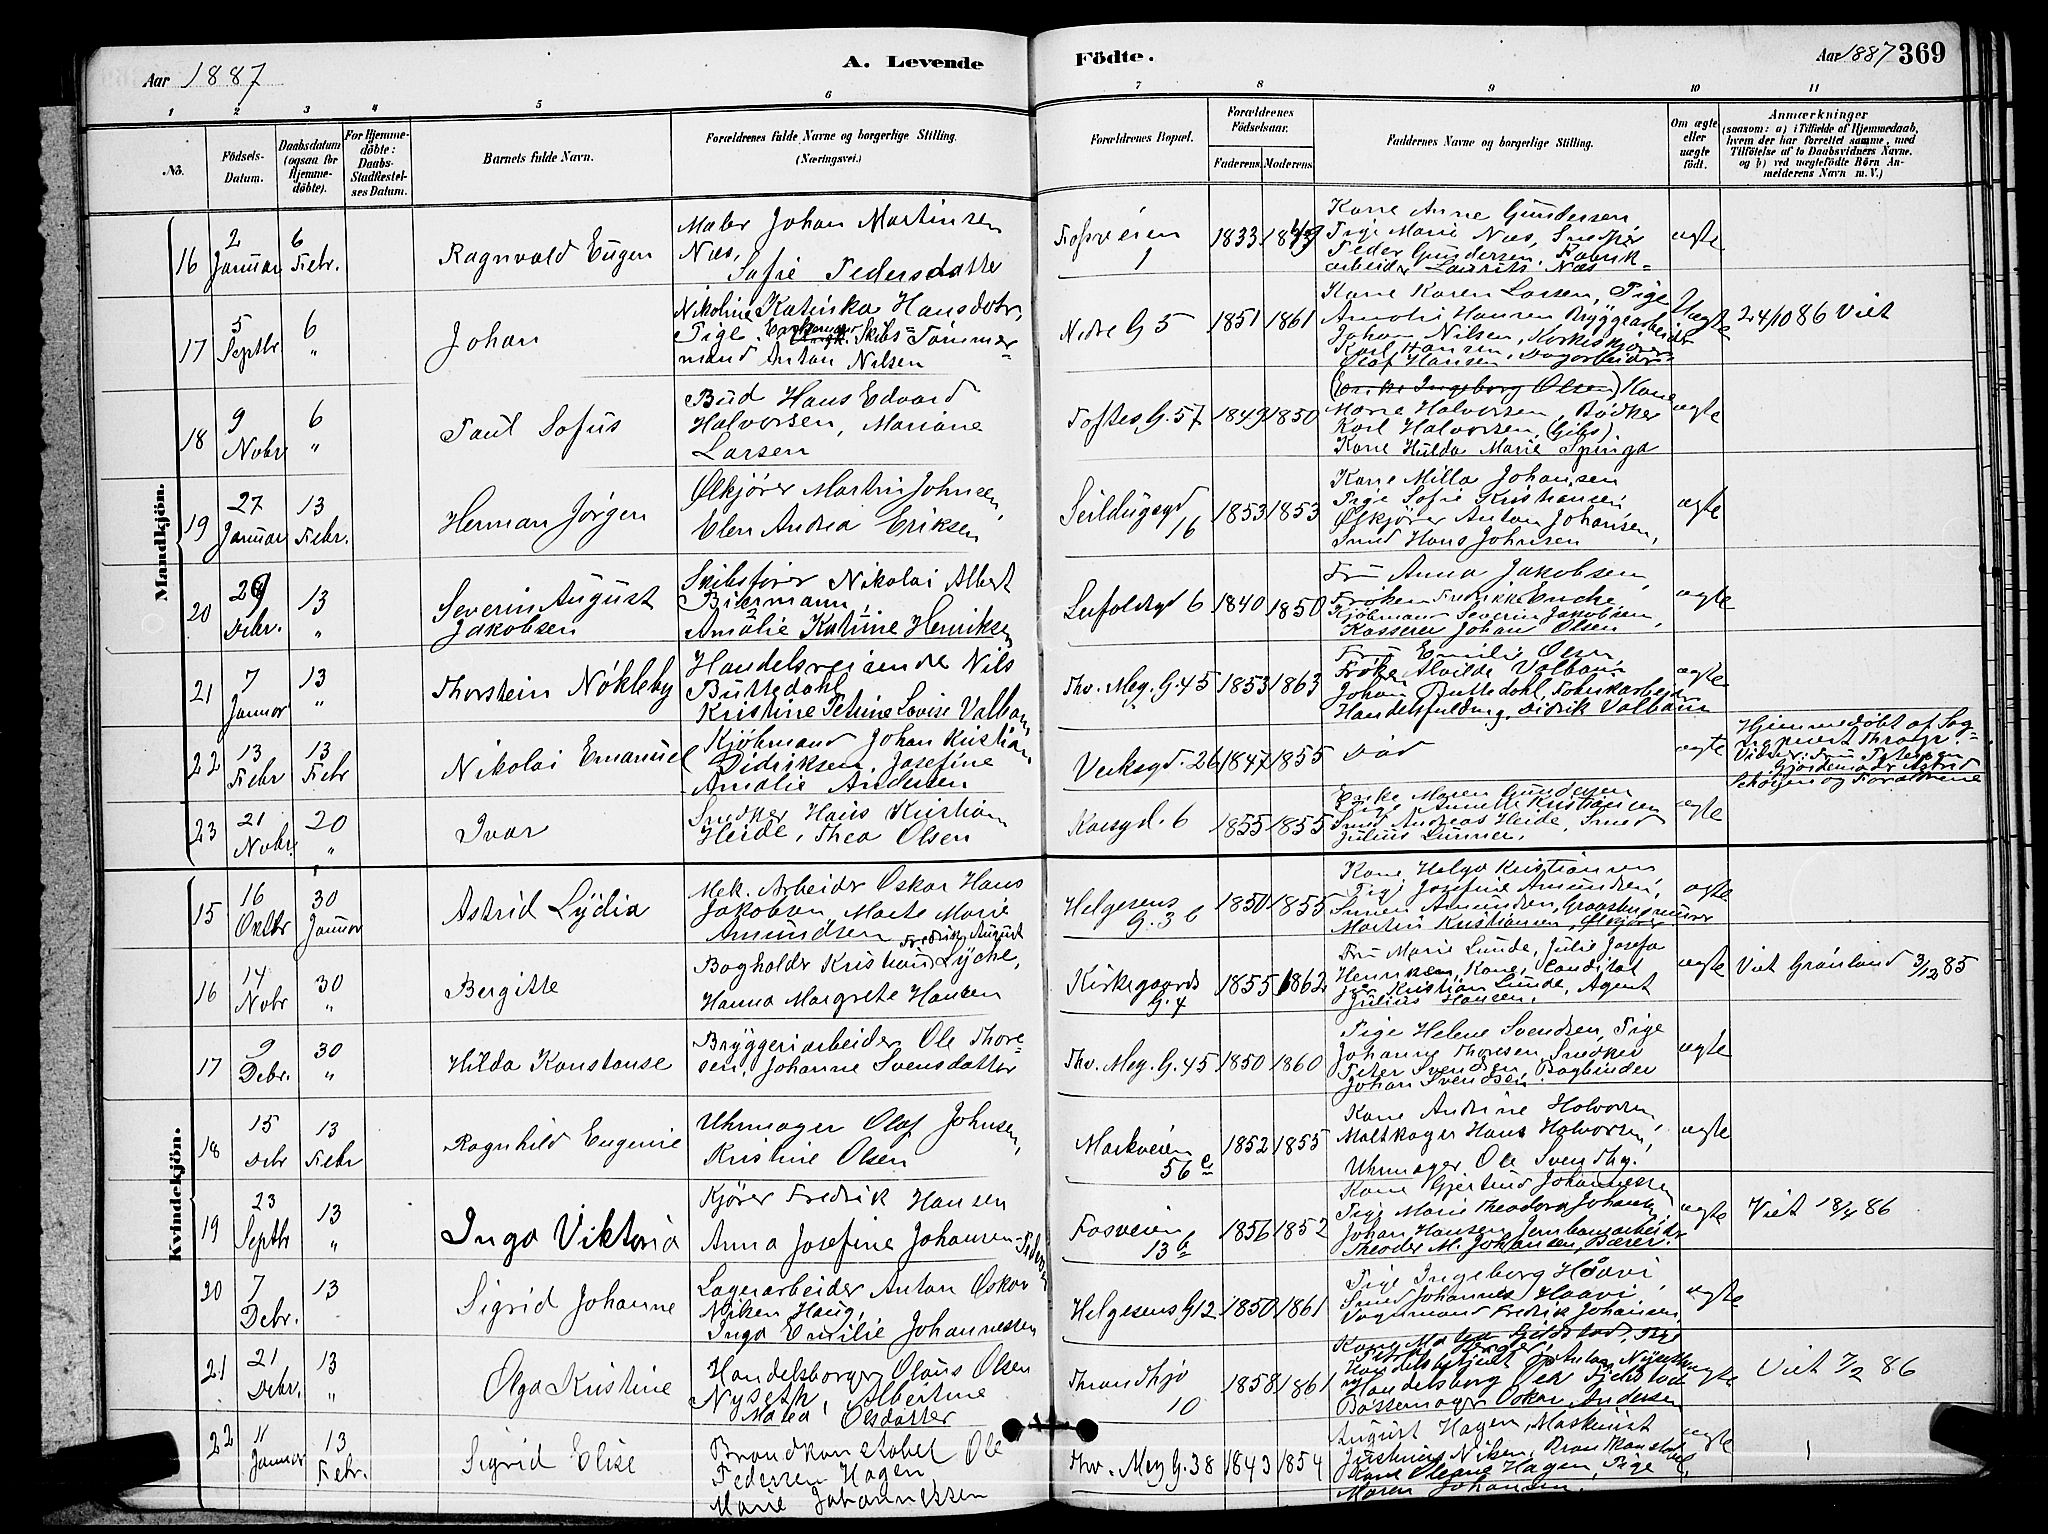 Aar 1887
A. Levende
Födte.
Aar 1887 369
1 2 3 4 5 6 7 8 9 10 11
No.
Födsels-Datum.
Daabsdatum (ogsaa for Hjemmedöbte).
For Hjemmedöbte: Daabs-Stadfæstelses Datum.
Barnets fulde Navn.
Forældrenes fulde Navne og borgerlige Stilling.
(Næringsvei.)
Forældrenes Bopæl.
Forældrenes Födselsaar.
Faderens. Moderens.
Faddernes Navne og borgerlige Stilling.
Om ægte eller uægte födt.
Anmærkninger
(saasom: a) i Tilfælde af Hjemmedaab,
hvem der har forrettet samme, med
Tilföielse af to Daabsvidners Navne,
og b) ved uægtefödte Börn Anmelderens Navn m. V.)
Mandkjön.
16 2 Januar 6 Febr. Ragnvald Eugen
Maler Johan Martinsen
Næs,
Sofie Pedersdatter
Fossveien 1 1833 1849
Kone Anne Gundersen
Pige Marie Næs, Snedker
Peder Gundersen, Fabrik
arbeider Laurits Næs
ægte
17 5 Septbr 6 " Johan
Nikoline Katinka Hansdatr,
Pige. Skibs-Tömmer-
mand Anton Nilsen
Nedre G 5 1851 1861
Kone Karen Larsen, Pige
Amalie Hansen Bryggearbeider
Johan Nilsen,
Karl Hansen
Olaf Hansen, Dagarbeider
Uægte
24/10 86 Viet
18 9 Nobr 6 " Paul Sofus
Bud Hans Edvard
Halvorsen, Mariane
Larsen
Toftes G. 57 1849 1850
(Enke Ingeborg Olsen) Kone
Marie Halvorsen, Bödker
Karl Halvorsen,
Kone Hulda Marie
ægte
19 27 Januar 13 Febr. Herman Jörgen
Ølkjörer Martin Johnsen,
Elen Andrea Eriksen
Seildugsgd 16 1853 1853
Kone Milla Johansen
Pige Sofie Kristiansen
Ølkjörer Anton Johansen,
Smed Hans Johnsen
ægte
20 29 Debr. 13 " Severin August
Jakobsen
Skibsförer Nikolai Albert
Biermann,
Amalie Katrine Henriksen
6 1840 1850
Fru Anna Jakobsen,
Fröken Fredrikke
Kjöbmand Severin Jakobsen,
Kasserer Johan Olsen
ægte
21 7 Januar 13 " Thorstein Nökleby
Handelsreisende Nils
Buttedahl
Kristine Petrine Lovise Valbaum
Thv. Mey. G. 45 1853 1863
Fru Emilie Olsen
Fröken Alvilde Valbaum
Johan Buttedahl,
Handelsfuldmg. Didrik Valbaum
ægte
22 13 Febr 13 Febr Nikolai Emanuel
Kjöbmand Johan Kristian
Didriksen, Josefine
Amalie Andersen
Verksgd. 26 1847 1855 Död
ægte
Hjemmedöbt af Sog-
nepræst
Vidner: Fru Petersen
Gjordemoder Astrid
og Forældrene
23 21 Nobr. 20 " Ivar
Snedker Hans Kristian
Heide, Thea Olsen
Korsgd. 6 1855 1855
Enke Maren Gundersen
Pige Annette Kristiansen
Smed Andreas Heide, Smed
Julius
ægte
Kvindekjön.
15 16 Oktbr 30 Januar Astrid Lydia
Mek. Arbeider Oskar Hans
Jakobsen, Marte Marie
Amundsen
Helgesens G. 36 1850 1855
Kone Helga Kristiansen
Pige Josefine Amundsen,
Simen Amundsen,
Martin Kristiansen, Ølkjörer
ægte
16 14 Nobr 30 " Bergitte
Fredrik August
Bogholder Kristian Lyche,
Hanna Margrete Hansen
Kirkegaards G. 4 1855 1862
Fru Marie Lunde, Julie Josefa
Henriksen, Kone, Candidat
jur Kristian Lunde, Agent
Julius Hansen.
ægte
Viet Grönland 3/12 85
17 9 Debr. 30 " Hilda Konstanse
Bryggeriarbeider Ole Thore-
sen, Johanne Svensdatter
Thv. Mey. G. 45 1850 1860
Pige Helene Svendsen, Pige
Johanne Thoresen, Snedker
Peter Svendsen, Bogbinder
Johan Svendsen.
ægte
18 15 Debr 13 Febr Ragnhild Eugenie
Uhrmager Olaf Johnsen,
Kristine Olsen
Markveien 56 c 1852 1855
Kone Andrine Halvorsen,
Maltkager Hans Halvorsen,
Uhrmager Ole Svendby.
ægte
19 23 Septbr 13 " Inga Viktoria
Kjörer Fredrik Hansen
Anna Josefine Johansen
Fosveien 13 b 1856 1852
Kone Gjertrud Johannessen
Pige Marie Theodora Johansen
Johan Hansen, Jernbanearbeider
Theodor M. Johansen, Bærer
ægte
Viet 18/4 86
20 7 Debr. 13 Sigrid Johanne
Lagerarbeider Anton Oskar
Niken Haug,
Inga Emilie Johannessen
Helgesens G 12 1850 1861
Pige Ingeborg Haavi,
Smed Johannes Haavi,
Vognmand Fredrik Johansen
ægte
21 21 Debr. 13 " Olga Kristine
Handelsborger Olaus Olsen
Nyseth, Albertine
Matea Olsdatter
Throndhjs 10 1858 1861
Handelsborg Ole
Bössemager Oskar Andersen
ægte
Viet 7/2 86
22 11 Januar 13 Febr. Sigrid Elise
Brandkonstabel Ole
Pedersen Hagen,
Marie Johannessen
Thv. Mey G. 38 1843 1854
August Hagen, Maskinist
Niken, Brandkonstabel,
Kone Oleana Hagen, Pige
Maren Johansen.
ægte